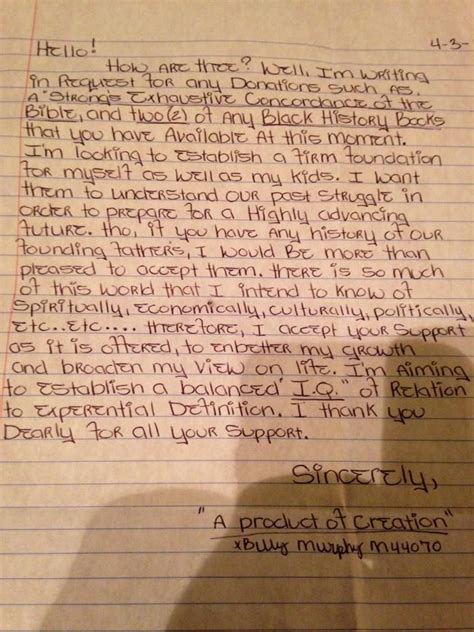 Hello! 4-3-
How are thee? Well, I'm writing
in Request for any Donations such as.
A "Strong's Exhaustive Concordance of the
Bible, and two(2) of Any Black History Books
that you have Available At this moment.
I'm looking to establish a firm foundation
for myself as well as my kids. I want
them to understand our past struggle in
order to prepare for a Highly advancing
future. tho, if you have Any history of our
founding fathers, I would Be more than
pleased to accept them. there is so much
of this world that I intend to know of
Spiritually, economically, culturally, politically,
etc..etc.... therefore, I accept your Support
as it is offered, to enbetter my growth
and broaden my view on life. I'm Aiming
to establish a balanced "I.Q." of Relation
to experential Definition. I thank you
Dearly for all your Support.
Sincerely,
"A product of Creation"
xBilly Murphy M44070